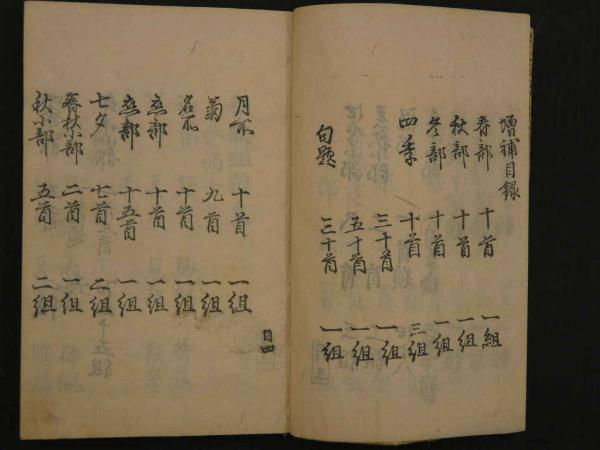 増補目録
春部 十首 一組
秋部 十首 一組
冬部 十首 一組
四季 十首 三組
三十首 一組
五十首 一組
句題 三十首 一組
月 十首 一組
菊 九首 一組
名所 十首 一組
恋部 十首 一組
恋部 十五首 一組
七夕 七首 二組
春秋小部 二首 一組
秋小部 五首 二組
目四